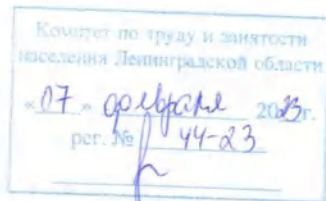 Комитет по труду и занятости
населения Ленинградской области
«07» февраля 2023г.
рег. № 44-23